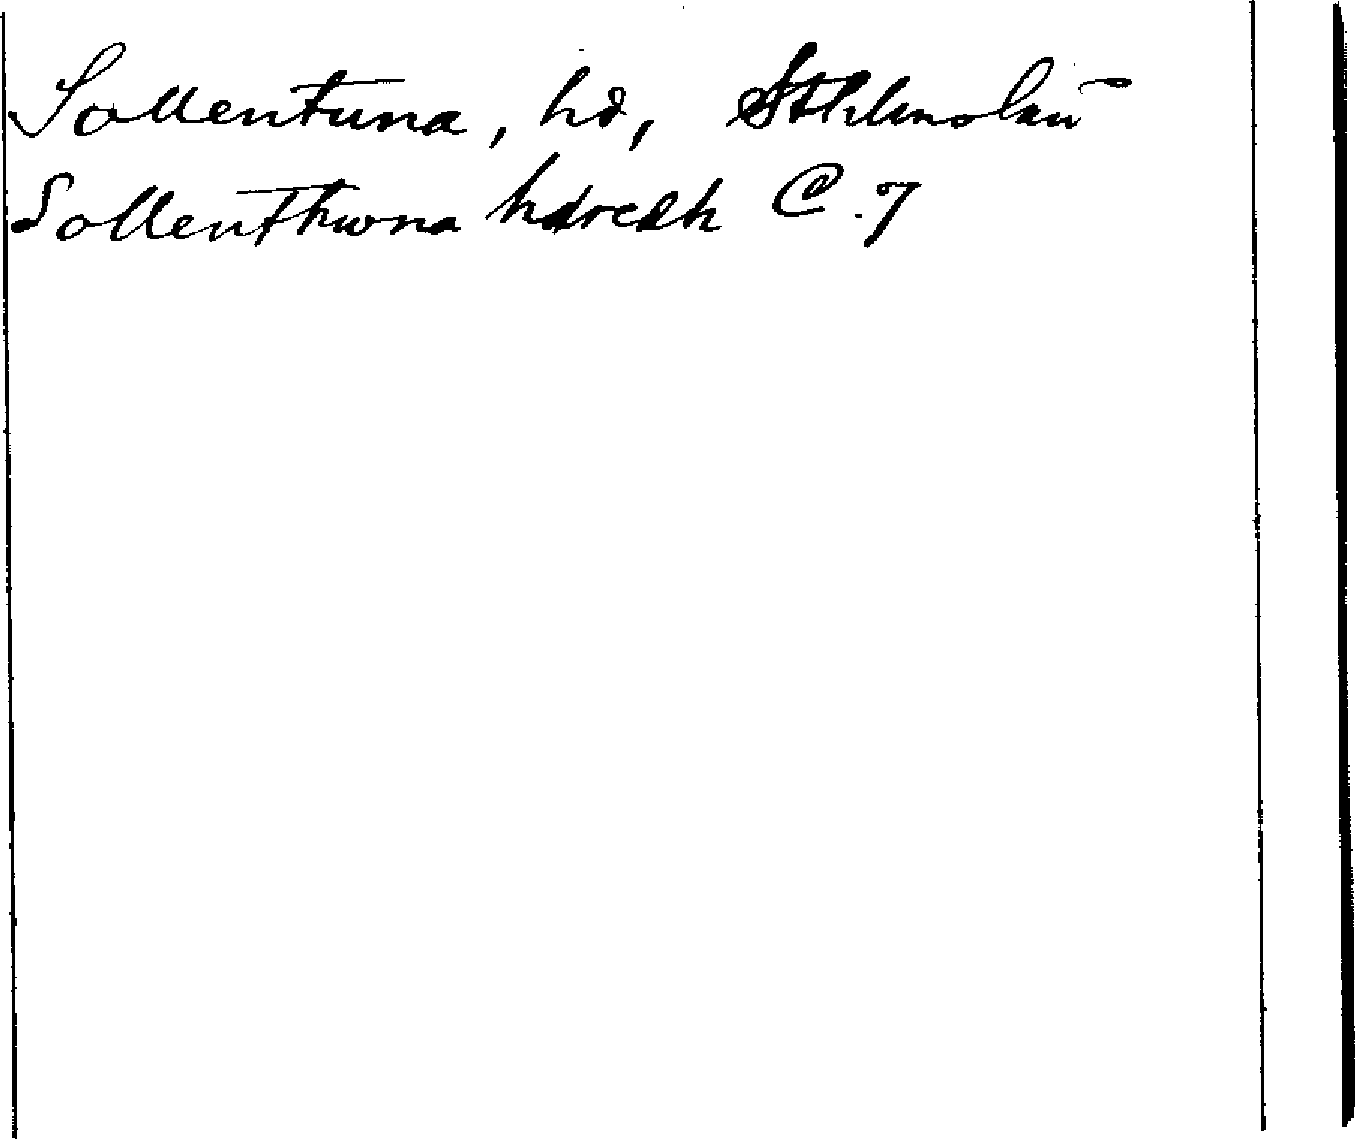 Sollentuna, hd, Sthlmslän
Sollenthwna hdredh C. 7